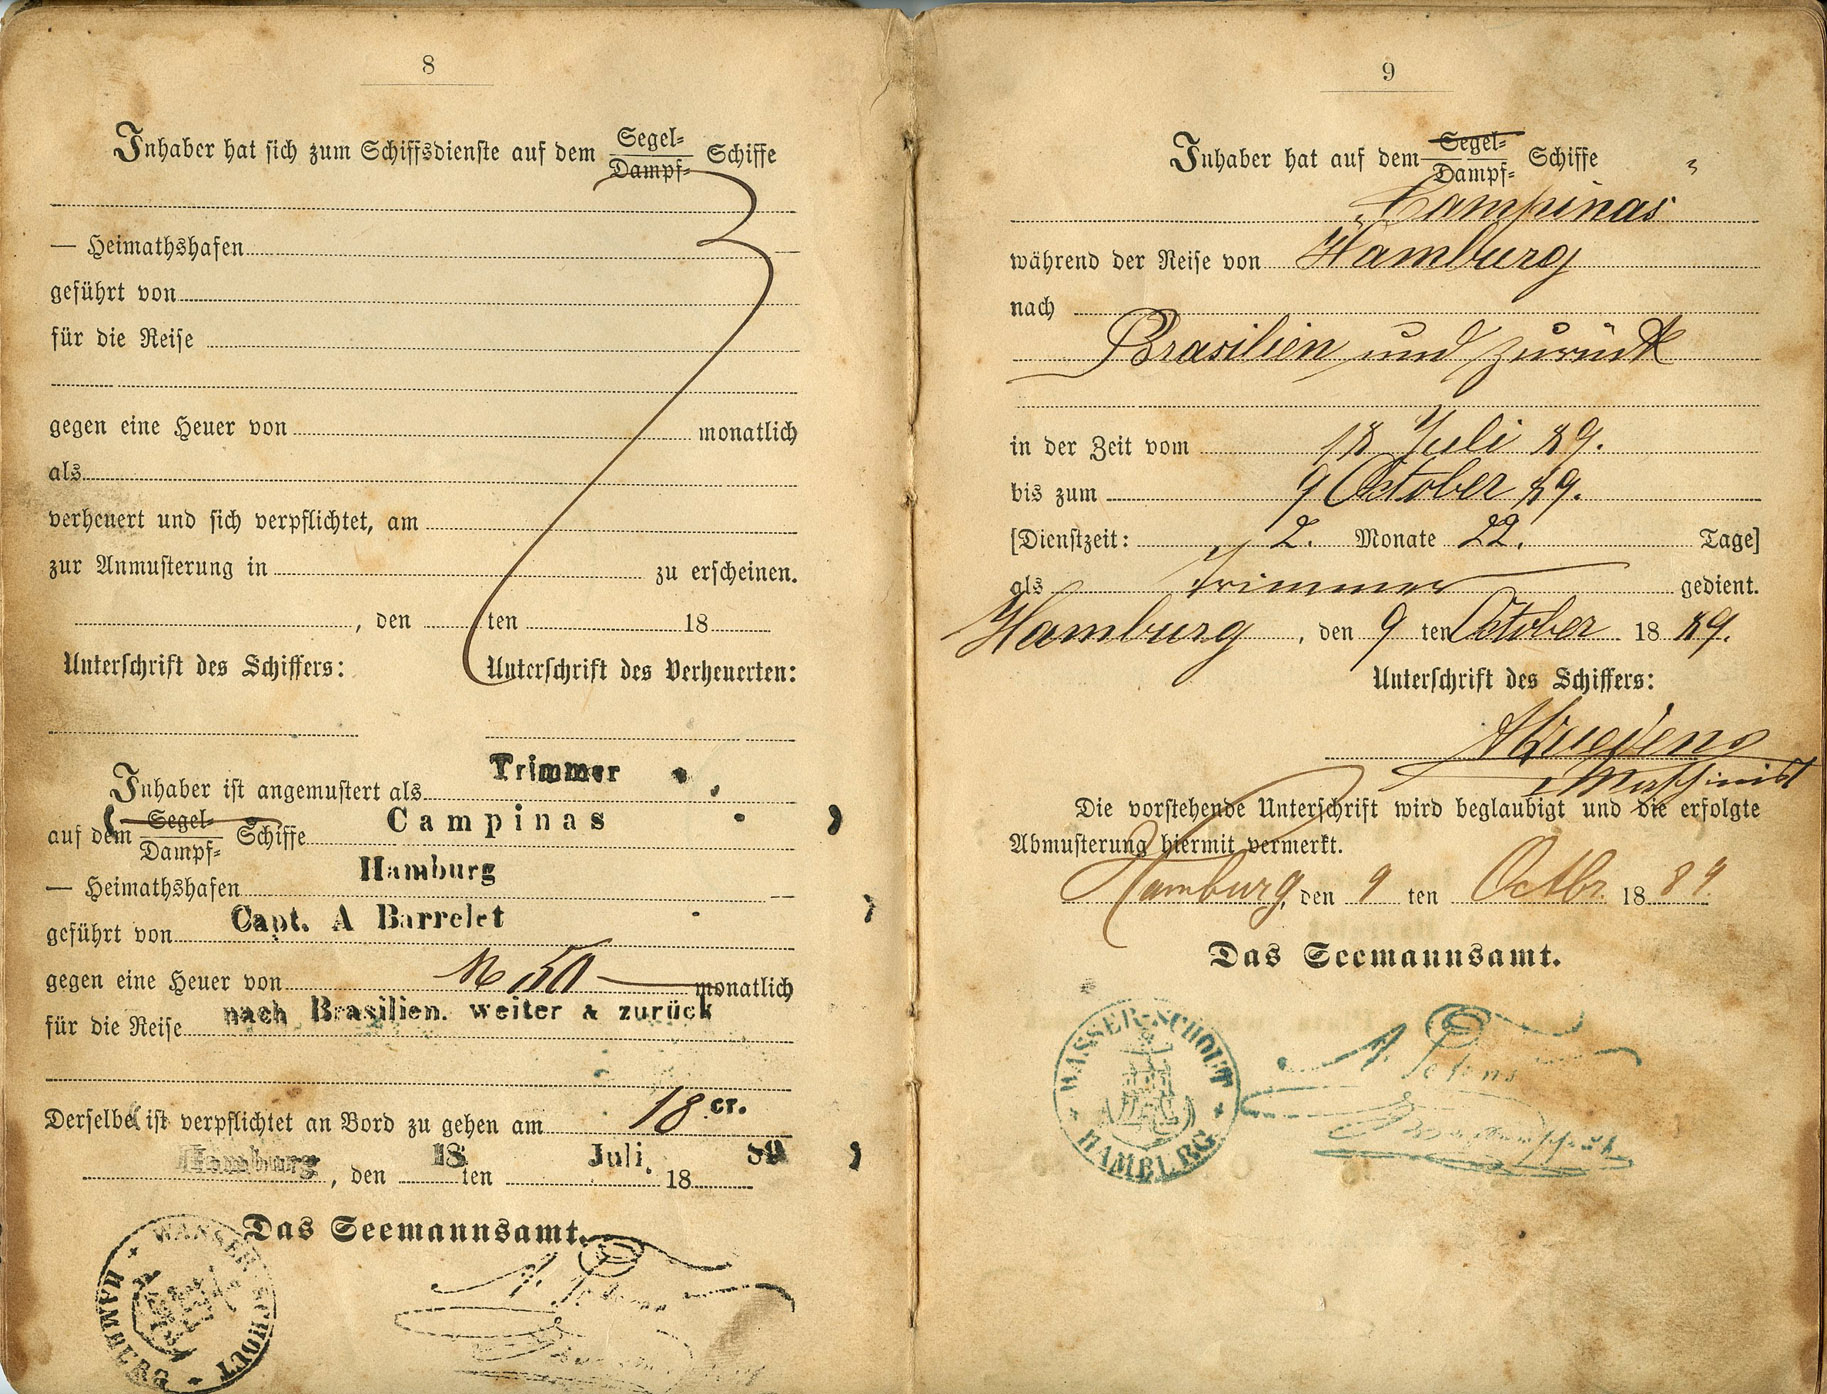 8
Inhaber hat sich zum Schiffsdienste auf dem Segel-
Dampf- Schiffe
— Heimathshafen
geführt von
für die Reise
gegen eine Heuer von monatlich
als
verheuert und sich verpflichtet, am
zur Anmusterung in zu erscheinen.
, den ten 18
Unterschrift des Schiffers: Unterschrift des Verheuerten:
Inhaber ist angemustert als Trimmer
auf dem Segel-
Dampf- Schiffe Campinas
— Heimathshafen Hamburg
geführt von Capt. A Barrelet
gegen eine Heuer von M 50 — monatlich
für die Reise nach Brasilien. weiter & zurück
Derselbe ist verpflichtet an Bord zu gehen am 18 cr.
Hamburg, den 18 ten Juli. 18 89
Das Seemannsamt.
WASSER-SCHOUT HAMBURG
9
Inhaber hat auf dem Segel-
Dampf- Schiffe
Campinas
während der Reise von Hamburg
nach
Brasilien und zurück
in der Zeit vom 18 Juli 89.
bis zum 9 October 89.
[Dienstzeit: 2. Monate 22. Tage]
als Trimmer gedient.
Hamburg, den 9 ten October 18 89.
Unterschrift des Schiffers:
Maschinist
Die vorstehende Unterschrift wird beglaubigt und die erfolgte
Abmusterung hiermit vermerkt.
Hamburg, den 9 ten Octbr. 18 89.
Das Seemannsamt.
WASSER-SCHOUT HAMBURG